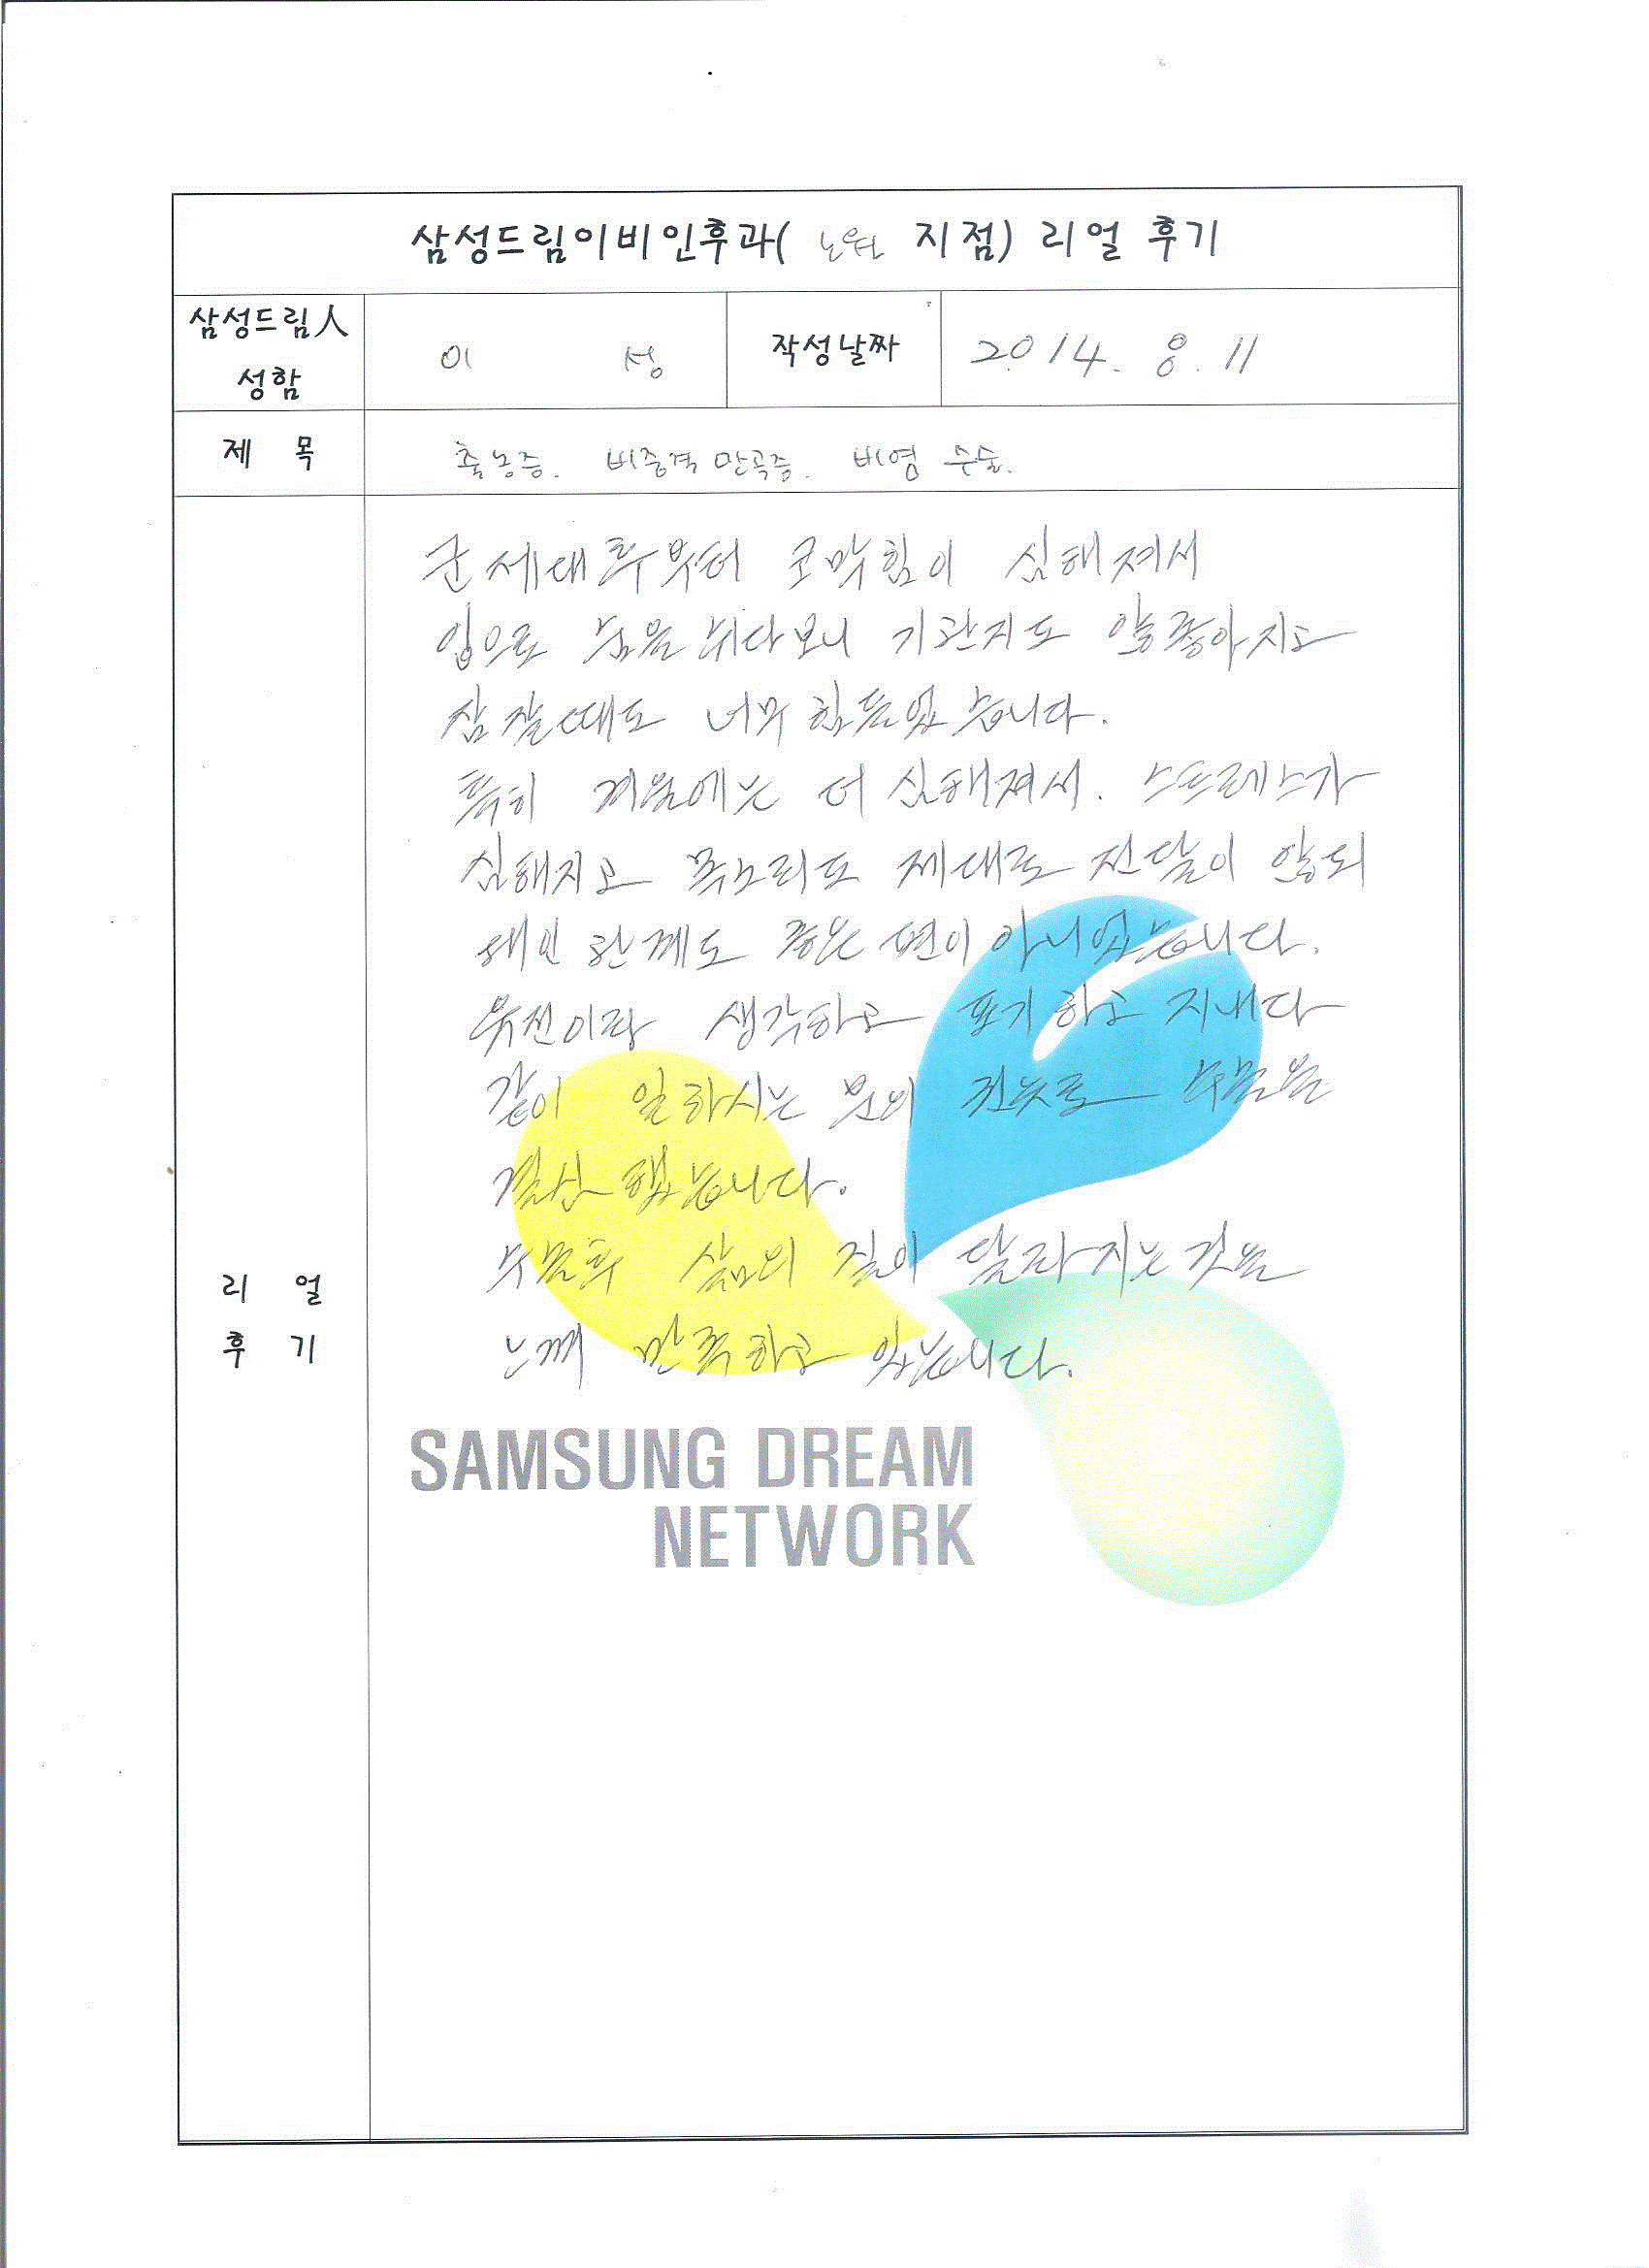 삼성드림이비인후과( 노원 지점) 리얼 후기
삼성드림人 성함
이 성
작성날짜
2014. 8. 11
제 목
축농증. 비중격 만곡증. 비염 수술.
리 얼 후 기
군 제대 후부터 코막힘이 심해져서
입으로 숨을 쉬다보니 기관지도 않좋아지고
잠 잘때도 너무 힘들었습니다.
특히 겨울에는 더 심해져서. 스트레스가
심해지고 목소리도 제대로 전달이 않되
대인 관계도 좋은 편이 아니었습니다.
유전이라 생각하고 포기하고 지내다
같이 일하시는 분의 권유로 수술을
결심 했습니다.
수술후 삶의 질이 달라지는것을
느껴 만족하고 있습니다.
SAMSUNG DREAM
NETWORK